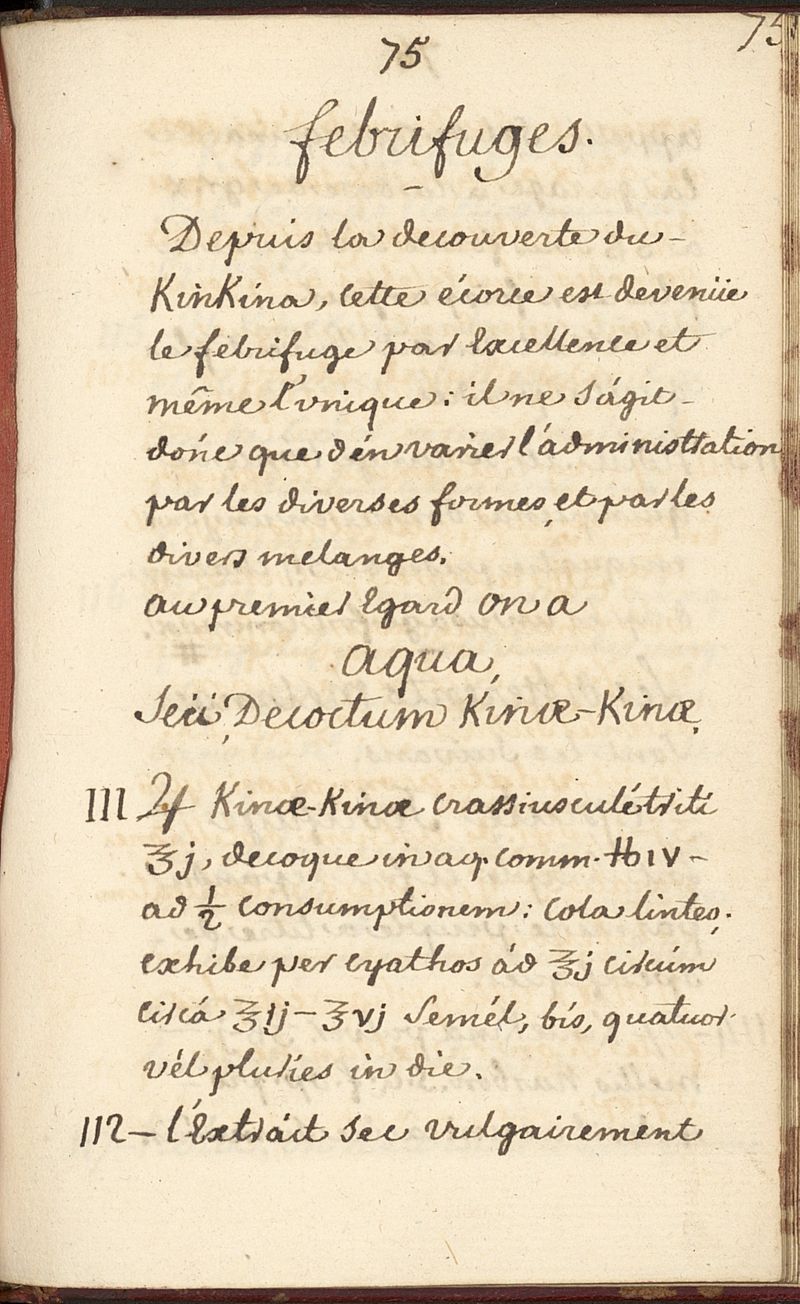 75
75
febrifuges.
Depuis la decouverte du-
KinKina, Cette écorce est devenüe
le febrifuge par Excellence et
même l'vnique: il ne s'ágit-
donc que d'én varier l'administration
par les diverses formes, et par les
divers melanges.
au premier Egard on a
aqua,
Seü, Decoctum Kinæ-Kinæ.
111 ♃ Kinæ-Kinæ crassiusculé triti
℥j, decoque in aq. comm. ℔ıv-
ad ½ consumptionem: Cola linteo.
exhibe per cyathos ád ℥j circúm
circá ℥ıj-℥vj Semél, bís, quatuor
vél pluries in die.
112- l'Extráit sec vulgairement